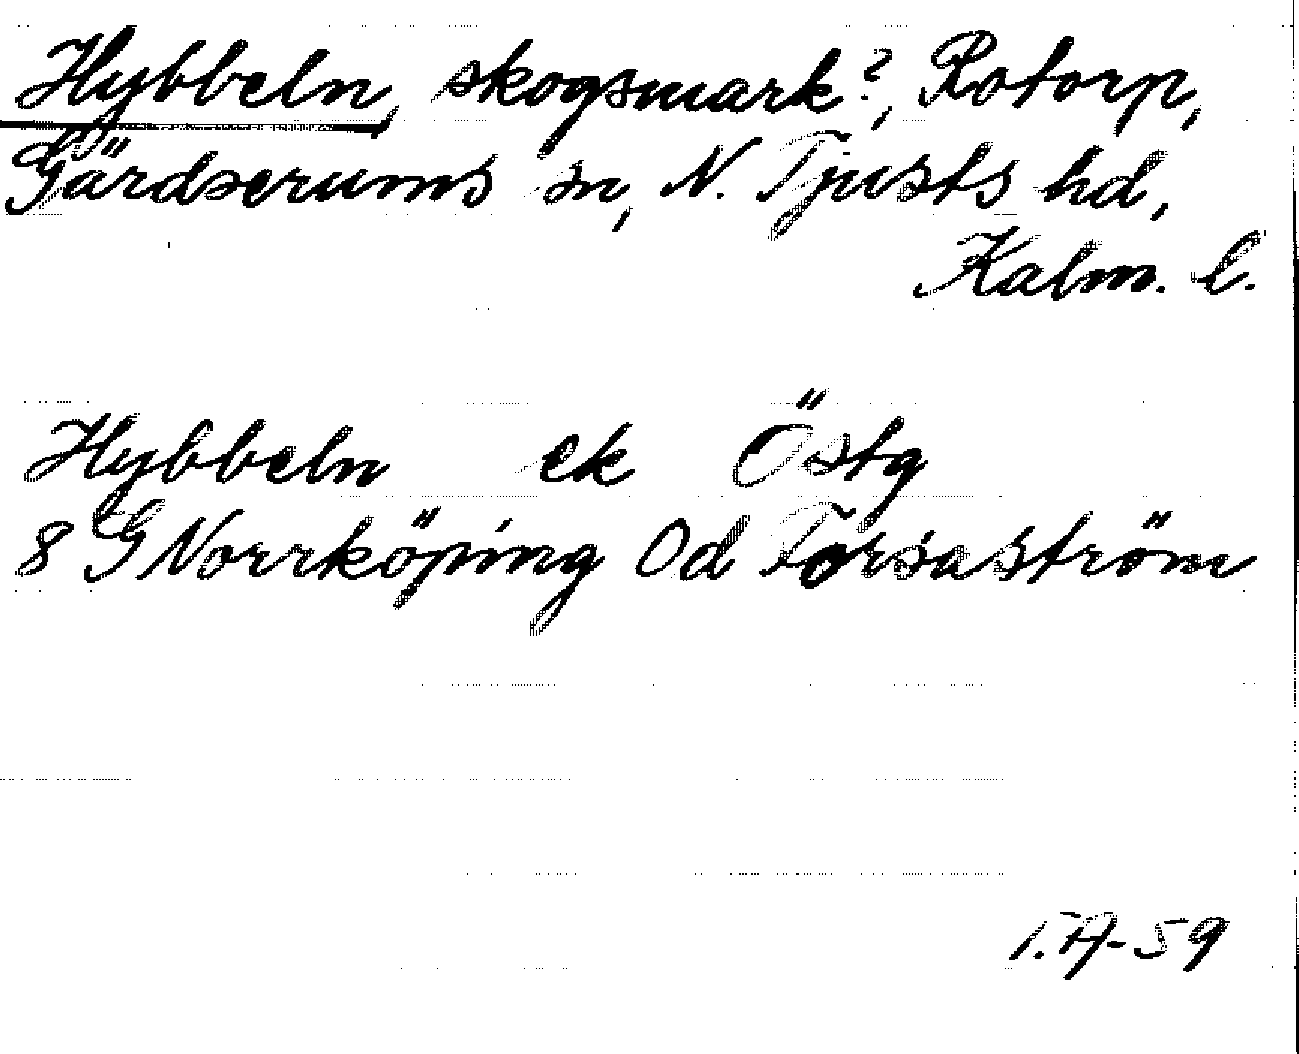 Hybbeln, skogsmark?, Rotorp,
Gärdserums sn, N. Tjusts hd,
Kalm. l.
Hybbeln ek Östg
8 G Norrköping Od Torsaström
I.A-59